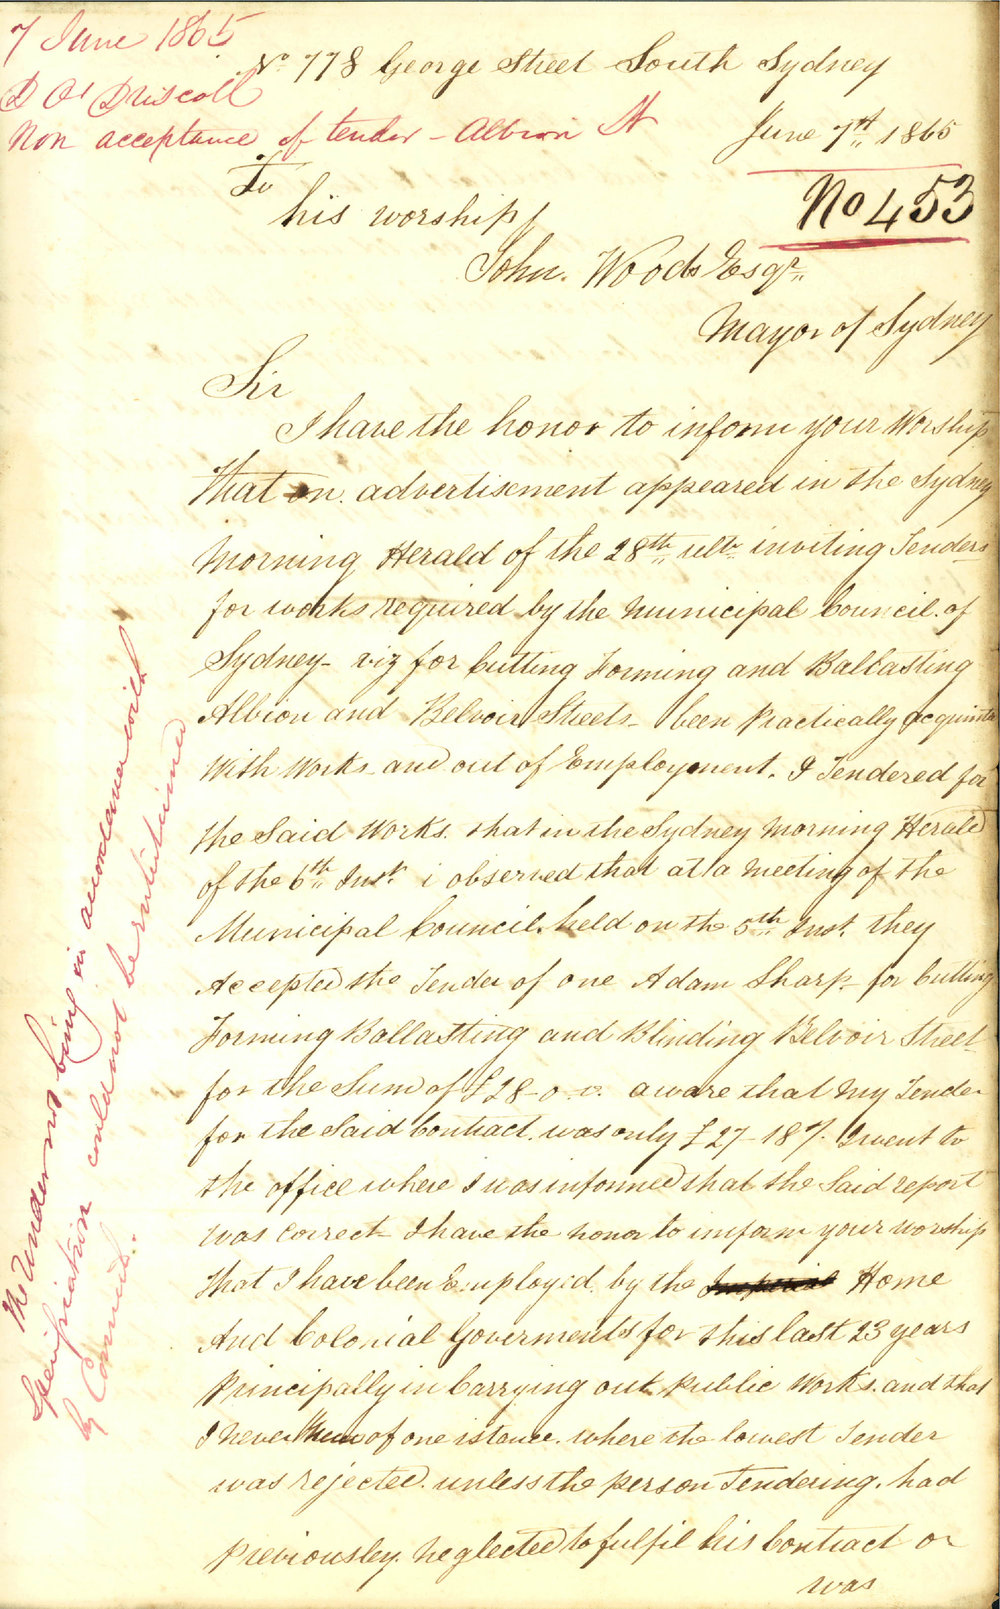 7 June 1865
D O'Driscoll
Non acceptance of tender - Albion St
No 778 George Street South Sydney
June 7th 1865
No 453
To
his worship
John. Woods Esqr
Mayor of Sydney
Sir
I have the honor to inform your Worship
That an advertisement appeared in the Sydney
Morning Herald of the 28th ulto inviting Tenders
for works required by the Municipal Council. of
Sydney - viz for Cutting Forming and Ballasting
Albion and Belvoir Streets - been practically acquinted
With Works and out of Employment. I Tendered for
the Said Works. that in the Sydney Morning Herald
of the 6th Inst i observed that at a Meeting of the
Municipal Council. held on the 5th Inst. they
Accepted the Tender of one Adam Sharp for Cutting
Forming Ballasting and Blinding Belvoir Street
for the Sum of £28-0-0. aware that My Tender
for the Said Contract. was only £27-18/. I went to
the office where I was informed that the Said report
was correct I have the honor to imform your worship
that I have been Employed. by the Imperial Home
And Colonial Goverments for this last 23 years
Principally in Carrying out Public Works. and that
I never Knew of one istance. where the lowest Tender
was rejected. unless the person Tendering. had
Previousley. neglected to fulfil his Contract or
was
The Tender not being in accordance with
Specification could not be entertained
by Commit.